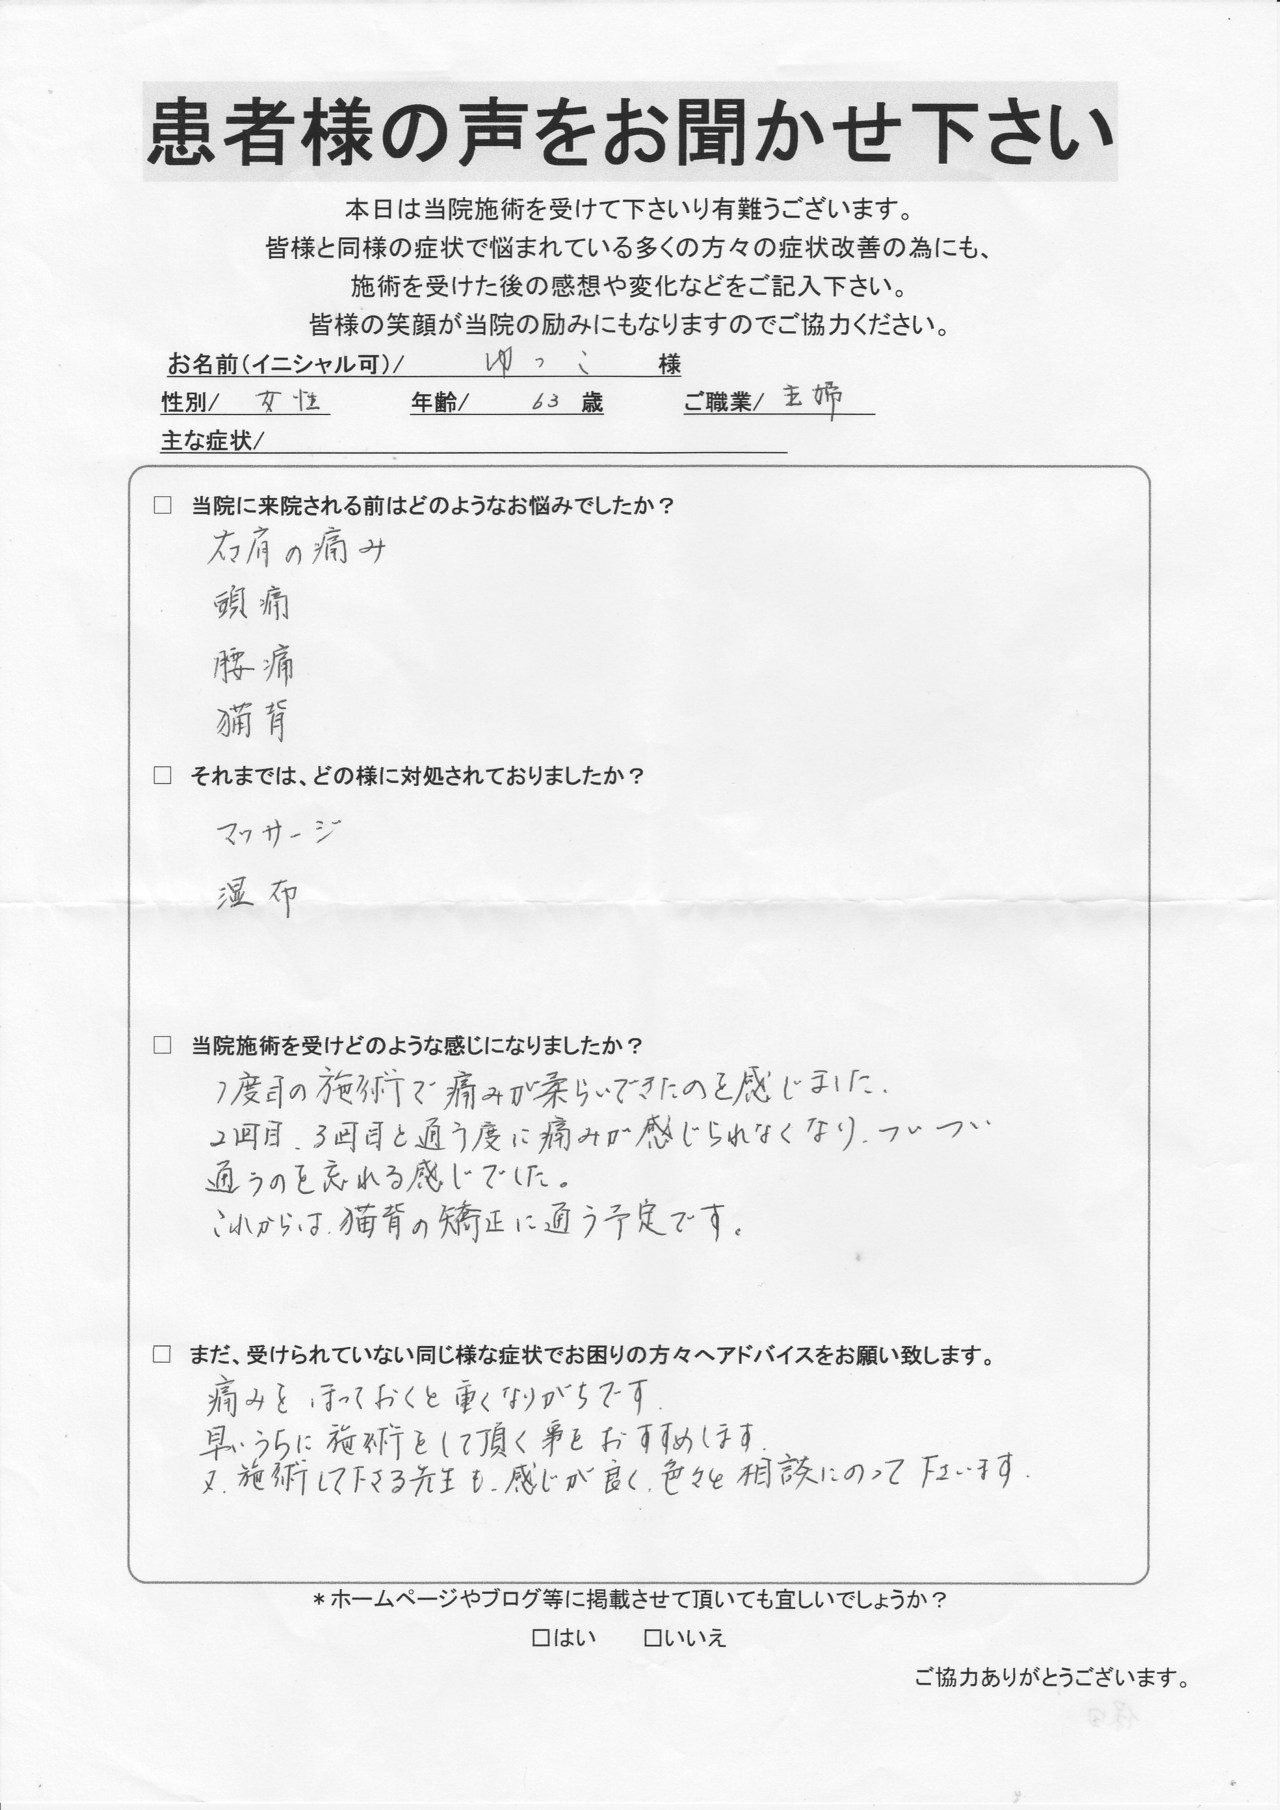 患者様の声をお聞かせ下さい
本日は当院施術を受けて下さいり有難うございます。
皆様と同様の症状で悩まれている多くの方々の症状改善の為にも、
施術を受けた後の感想や変化などをご記入下さい。
皆様の笑顔が当院の励みにもなりますのでご協力ください。
お名前(イニシャル可)/ ゆっこ 様
性別/ 女性 年齢/ 63 歳 ご職業/ 主婦
主な症状/
□ 当院に来院される前はどのようなお悩みでしたか？
右肩の痛み
頭痛
腰痛
猫背
□ それまでは、どの様に対処されておりましたか？
マッサージ
湿布
□ 当院施術を受けどのような感じになりましたか？
1度目の施術で痛みが柔らいできたのを感じました.
2回目、3回目と通う度に痛みが感じられなくなり、ついつい
通うのを忘れる感じでした。
これからは、猫背の矯正に通う予定です。
□ まだ、受けられていない同じ様な症状でお困りの方々へアドバイスをお願い致します。
痛みを ほっておくと重くなりがちです.
早いうちに施術をして頂く事をおすすめします.
又、施術して下さる先生も、感じが良く、色々と相談にのって下さいます.
＊ホームページやブログ等に掲載させて頂いても宜しいでしょうか？
□はい □いいえ
ご協力ありがとうございます。